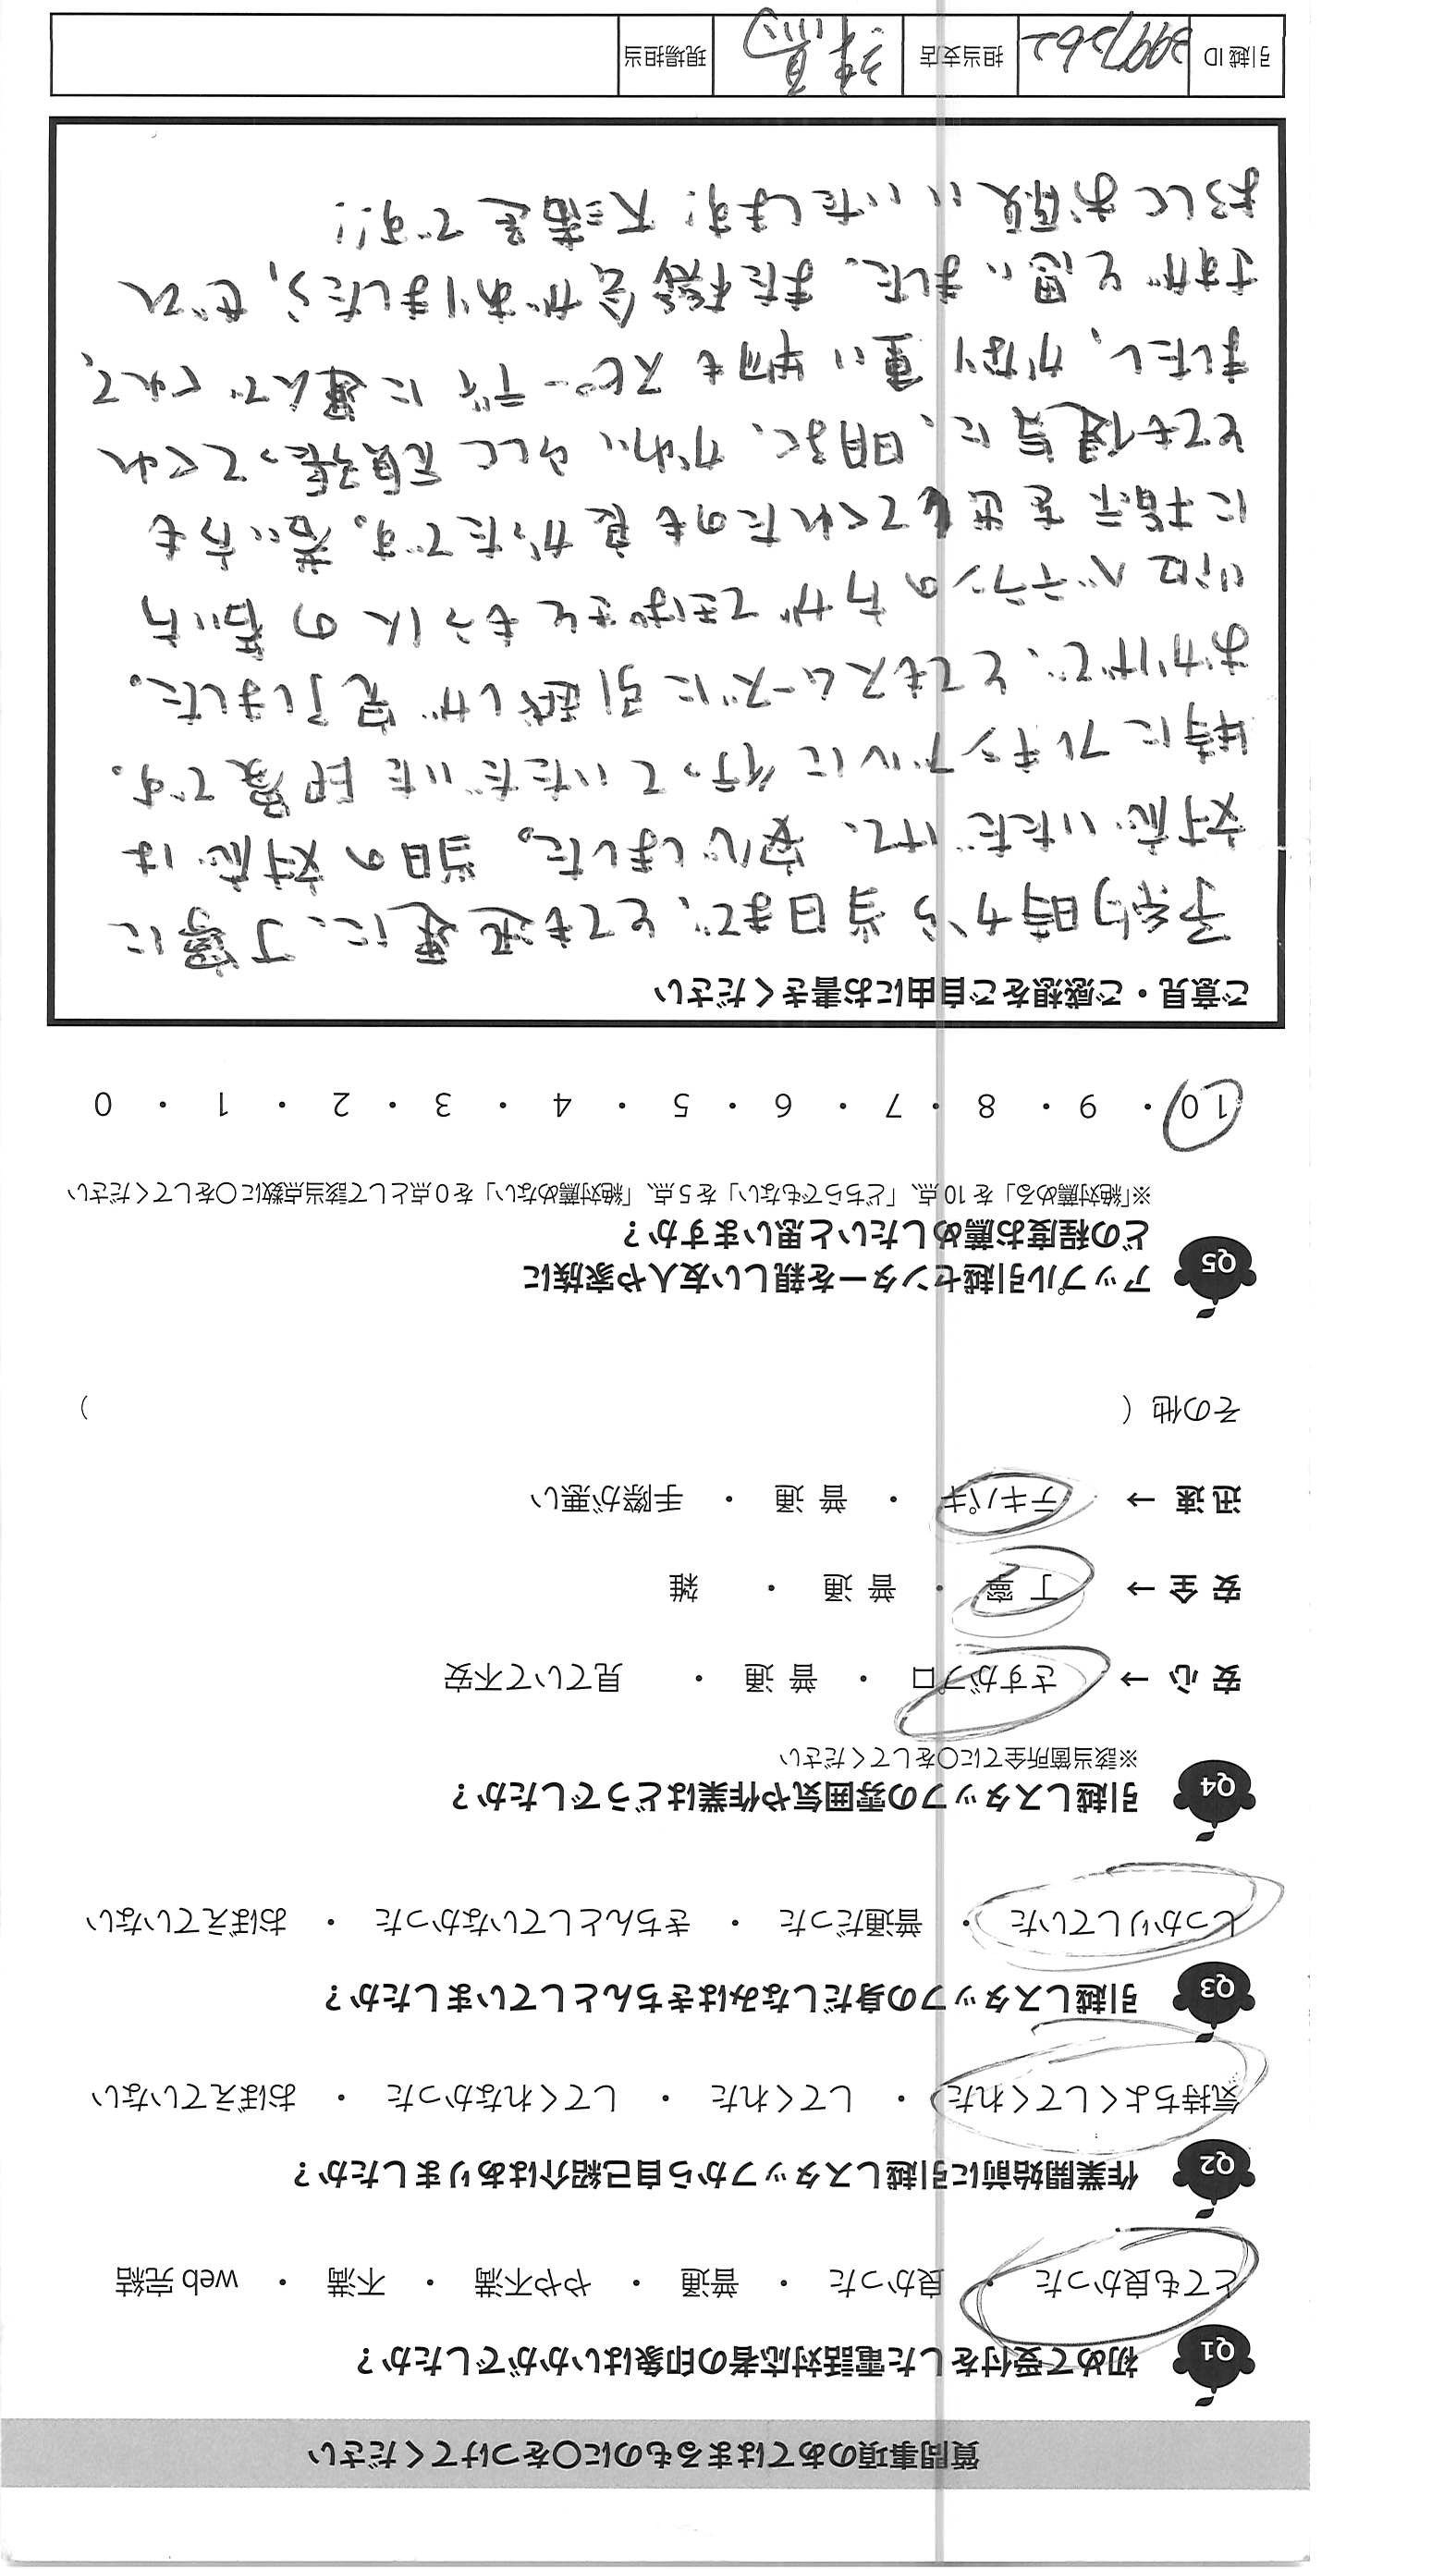 質問事項のあてはまるものに〇をつけてください
Q1 初めて受付をした電話対応者の印象はいかがでしたか？
とても良かった ・ 良かった ・ 普通 ・ やや不満 ・ 不満 ・ web 完結
Q2 作業開始前に引越しスタッフから自己紹介はありましたか？
気持ちよくしてくれた ・ してくれた ・ してくれなかった ・ おぼえていない
Q3 引越しスタッフの身だしなみはきちんとしていましたか？
しっかりしていた ・ 普通だった ・ きちんとしていなかった ・ おぼえていない
Q4 引越しスタッフの雰囲気や作業はどうでしたか？
※該当箇所全てに〇をしてください
安心 → さすがプロ ・ 普通 ・ 見ていて不安
安全 → 丁寧 ・ 普通 ・ 雑
迅速 → テキパキ ・ 普通 ・ 手際が悪い
その他（ ）
Q5 アップル引越センターを親しい友人や家族に
どの程度お薦めしたいと思いますか？
※「絶対薦める」を10点、「どちらでもない」を5点、「絶対薦めない」を0点として該当点数に〇をしてください
10 ・ 9 ・ 8 ・ 7 ・ 6 ・ 5 ・ 4 ・ 3 ・ 2 ・ 1 ・ 0
ご意見・ご感想をご自由にお書きください
予約時から当日まで、とても迅速に、丁寧に
対応いただけて、安心しました。当日の対応は
特にフレキシブルに行っていただいた印象です。
おかげで、とてもスムーズに引越しが完了しました。
ベテランの方がてきぱきともう1人の若い方
に指示を出してくれたのも良かったです。若い方も
とても健気に、明るく、かわいらしく頑張ってくれ
ましたし、かなり重い物もスピーディに運んでくれて、
さすがと思いました。また機会がありましたら、ぜひ
よろしくお願いいたします！大満足です!!
引越ID 担当支店 練馬 現場担当